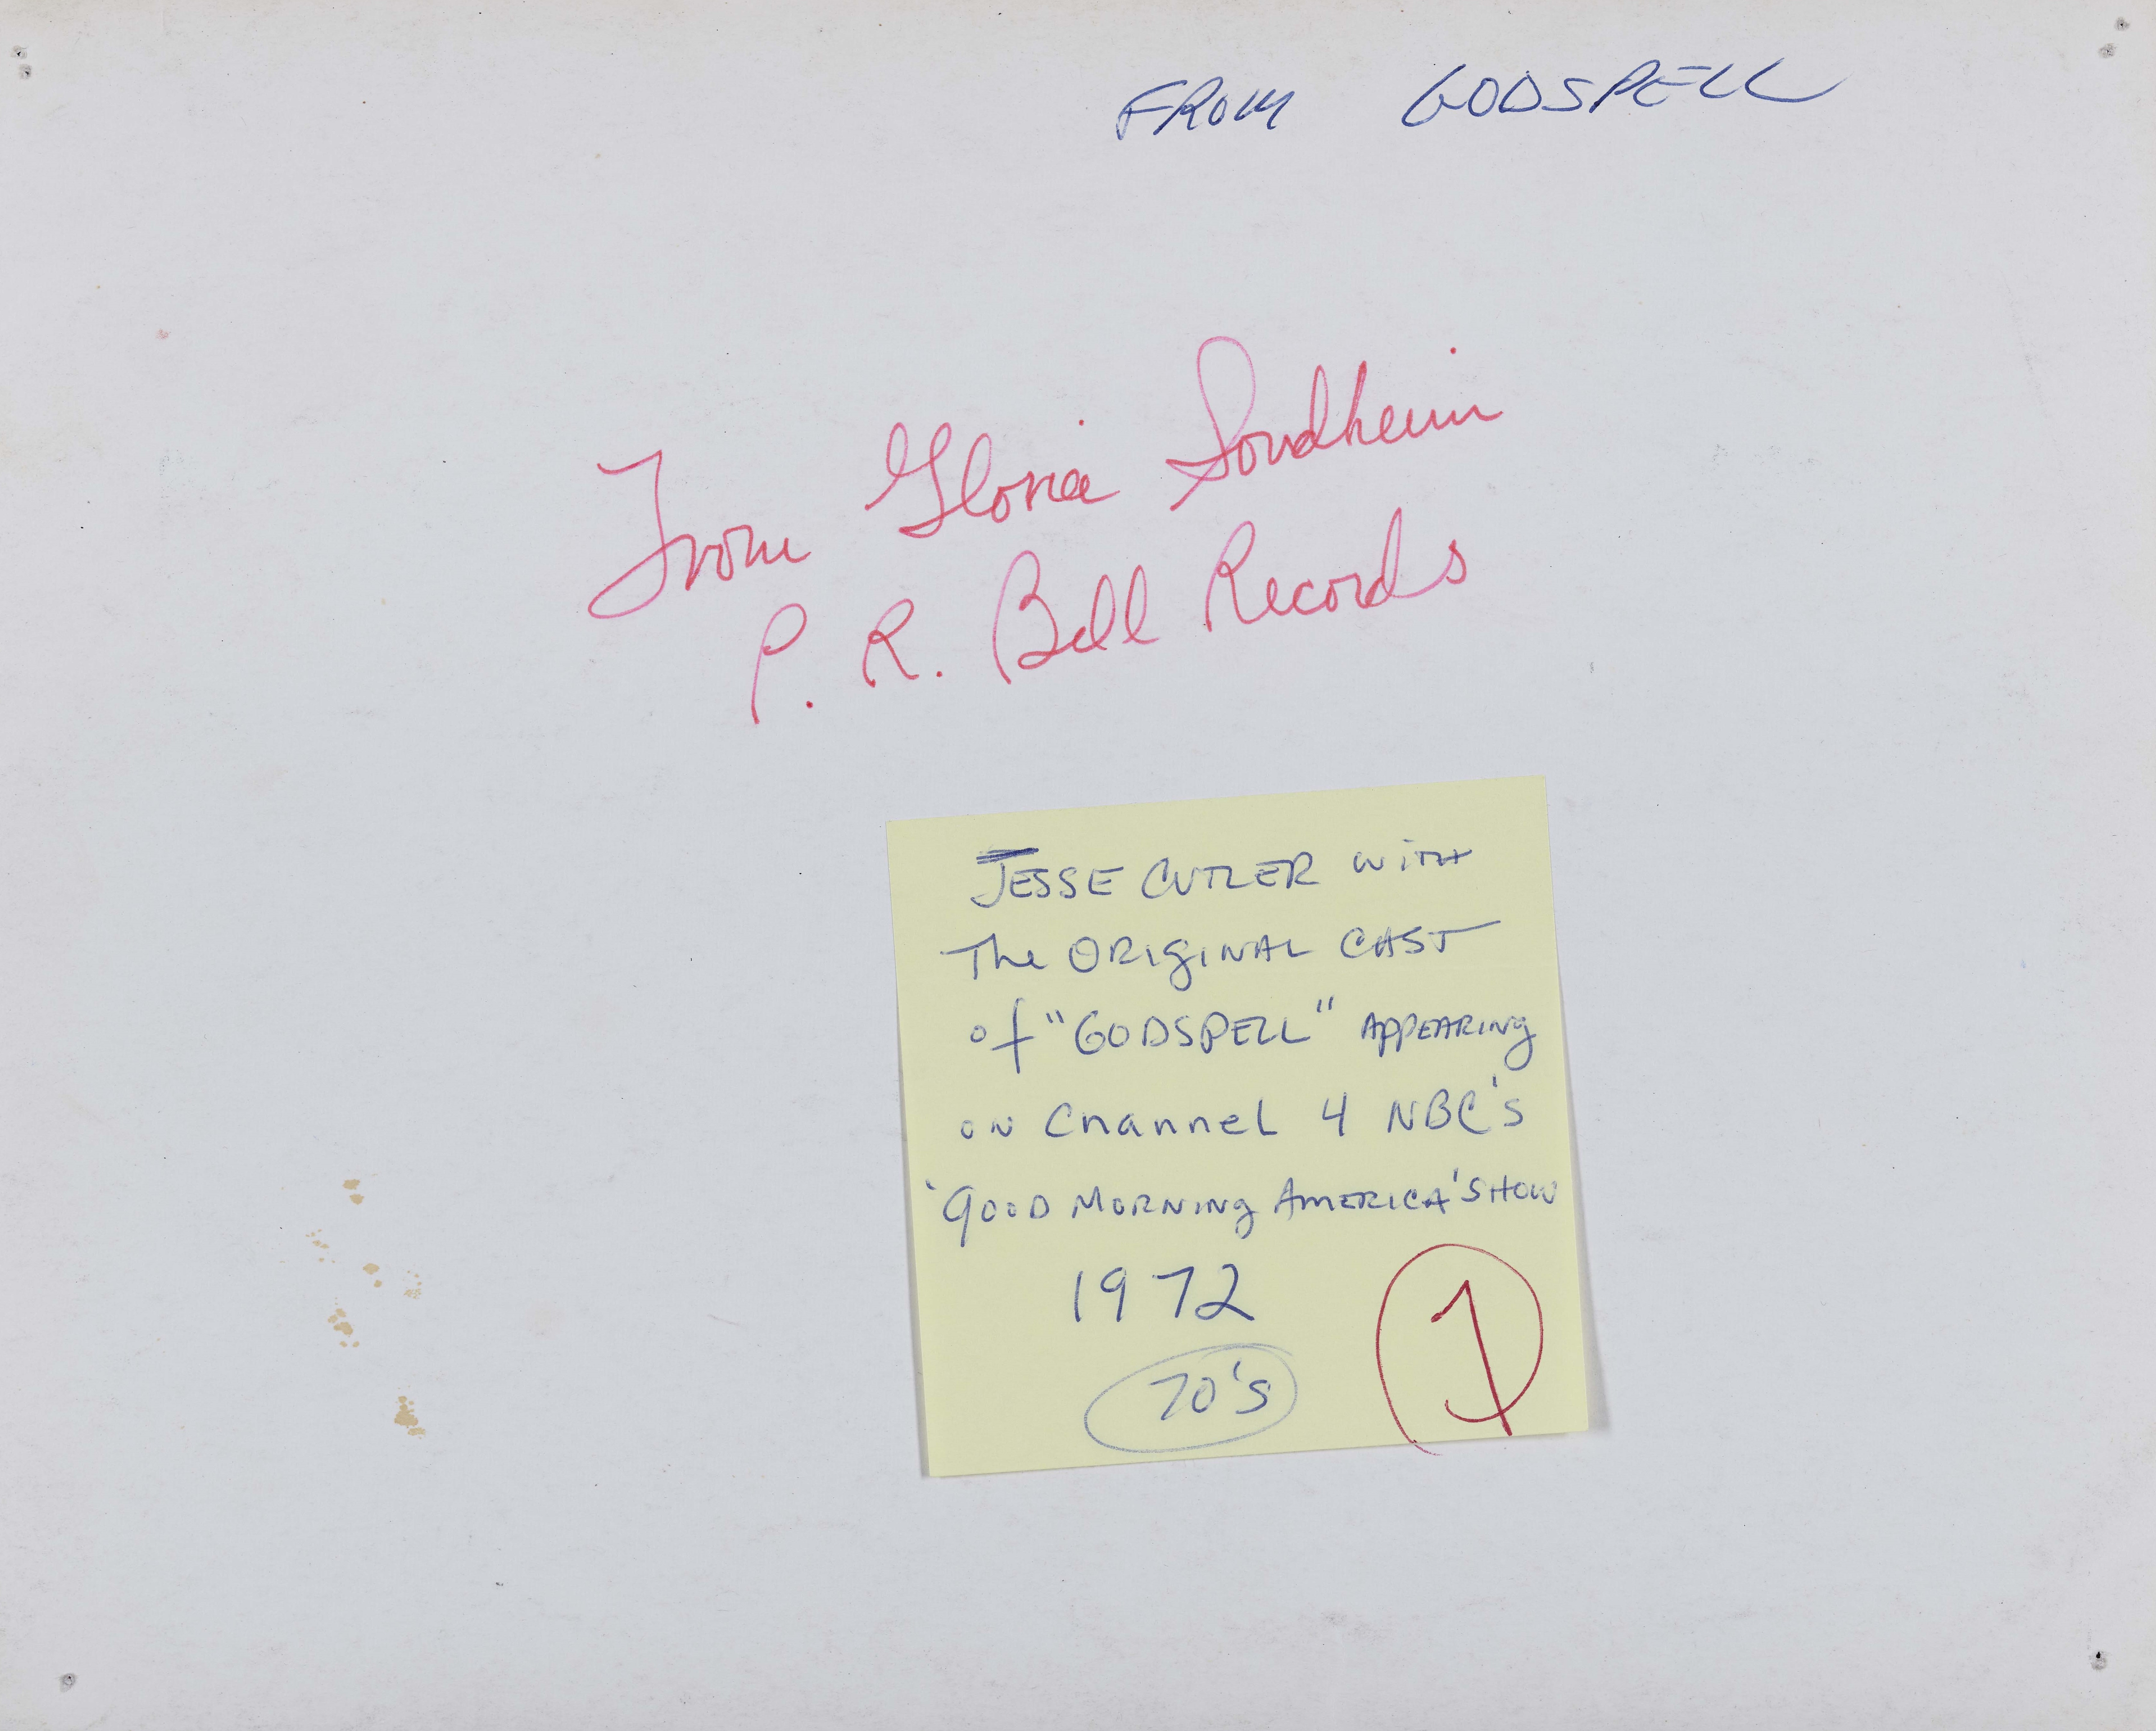 FROM GODSPELL
From Gloria Sondheim
P. R. Bell Records
JESSE CUTLER WITH
The ORIGINAL CAST
of "GODSPELL" APPEARING
ON Channel 4 NBC'S
'GOOD MORNING AMERICA' SHOW
1972
70's
1